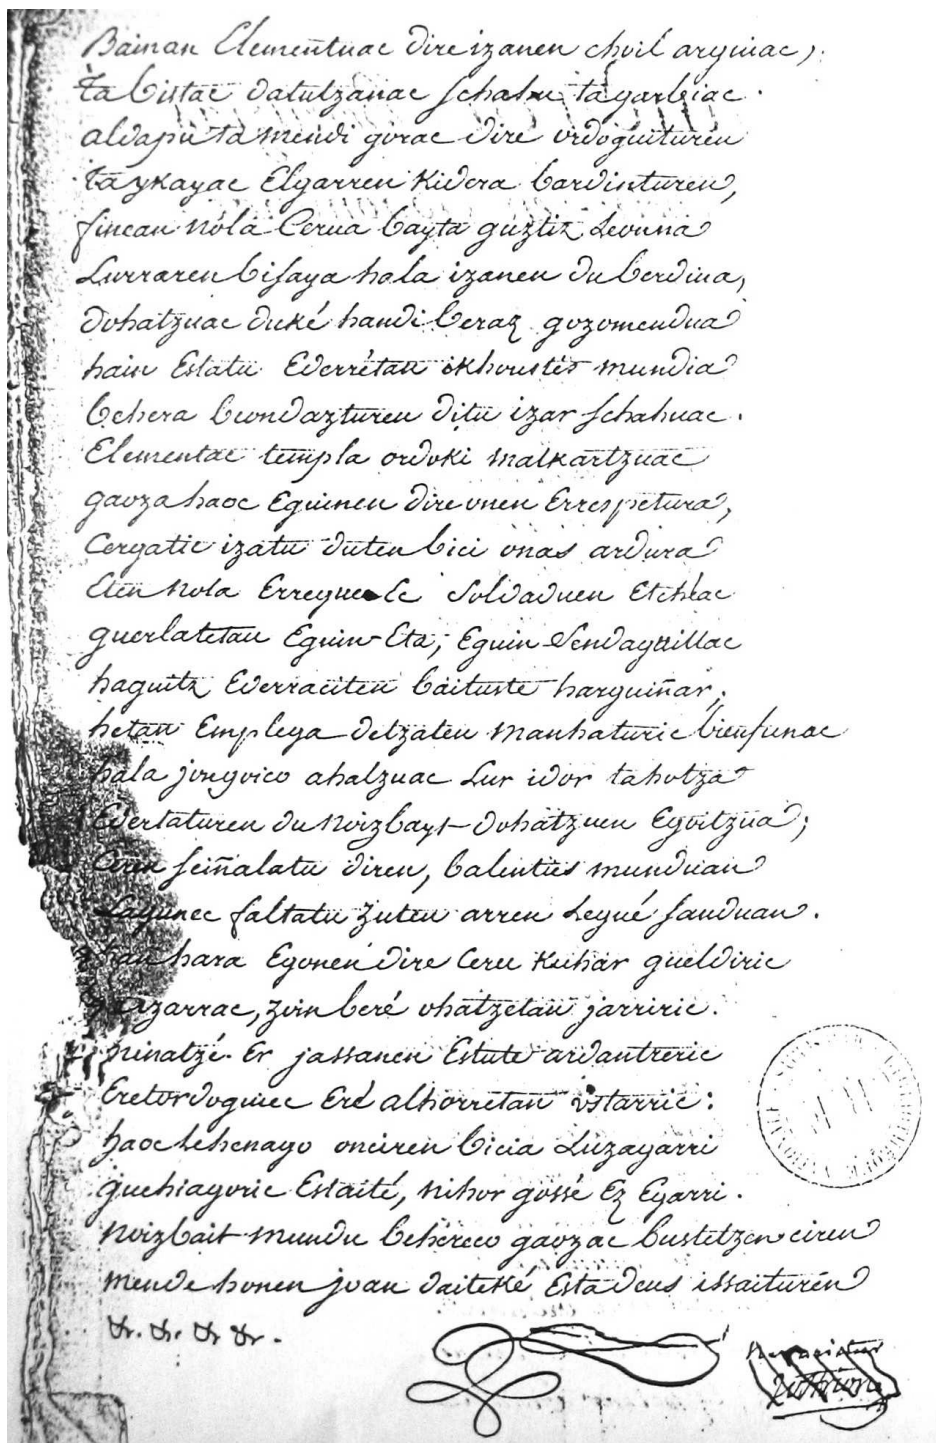 Bainan Elementuac dire izanen choil arguiac,
Ta bistac datutzanac schahu ta garbiac.
aldapa ta mendi gorac dire ordoguituren
Ta ykayac Elgarren kidera bardinturen,
fincan nola Cerua bayta guztiz Leouna
Lurraren bisaya hala izanen du berdina,
dohatzuac duké handi beraz gozomendua
hain Estatu Ederrétan ikhoustés mundia
behera beondazturen ditu izar schahuac.
Elementac templa ordoki malkartzuac
gaoza haoc Eguinen dire onen Errespetura,
Cergatic izatu duten bici onas ardura
Eten nola Erregue Soldaduen Etchéac
guerlatetan Eguin Eta, Eguin Sendaguillac
haguitz Ederraciten baituste harguiñar,
hetan Emplega detzaten manhaturic bienfunac
hala jongoico ahalzuac Lur idor ta hotza
Edertaturen du noizbayt dohatzuen Egoitzua,
Ceren seiñalatu diren, balenties munduan
Lagunec faltatu zuten arren Legué sanduan.
han hara Egonén dire Ceru kuhar gueldiric
izarrac, zoin beré ohatzetan jarriric.
ninatzé Er jassanen Estute ardantreric
Eretordoguiec Eré alhorrétan ostarric:
haoc lehenago onciren bicia Luzagarri
guehiagoric Eslaité, nihor gossé Ez Egarri.
noizbait mundu behéreco gaozac bustetzen ciren
mende honen joan daiteké Estadeus issaiturén